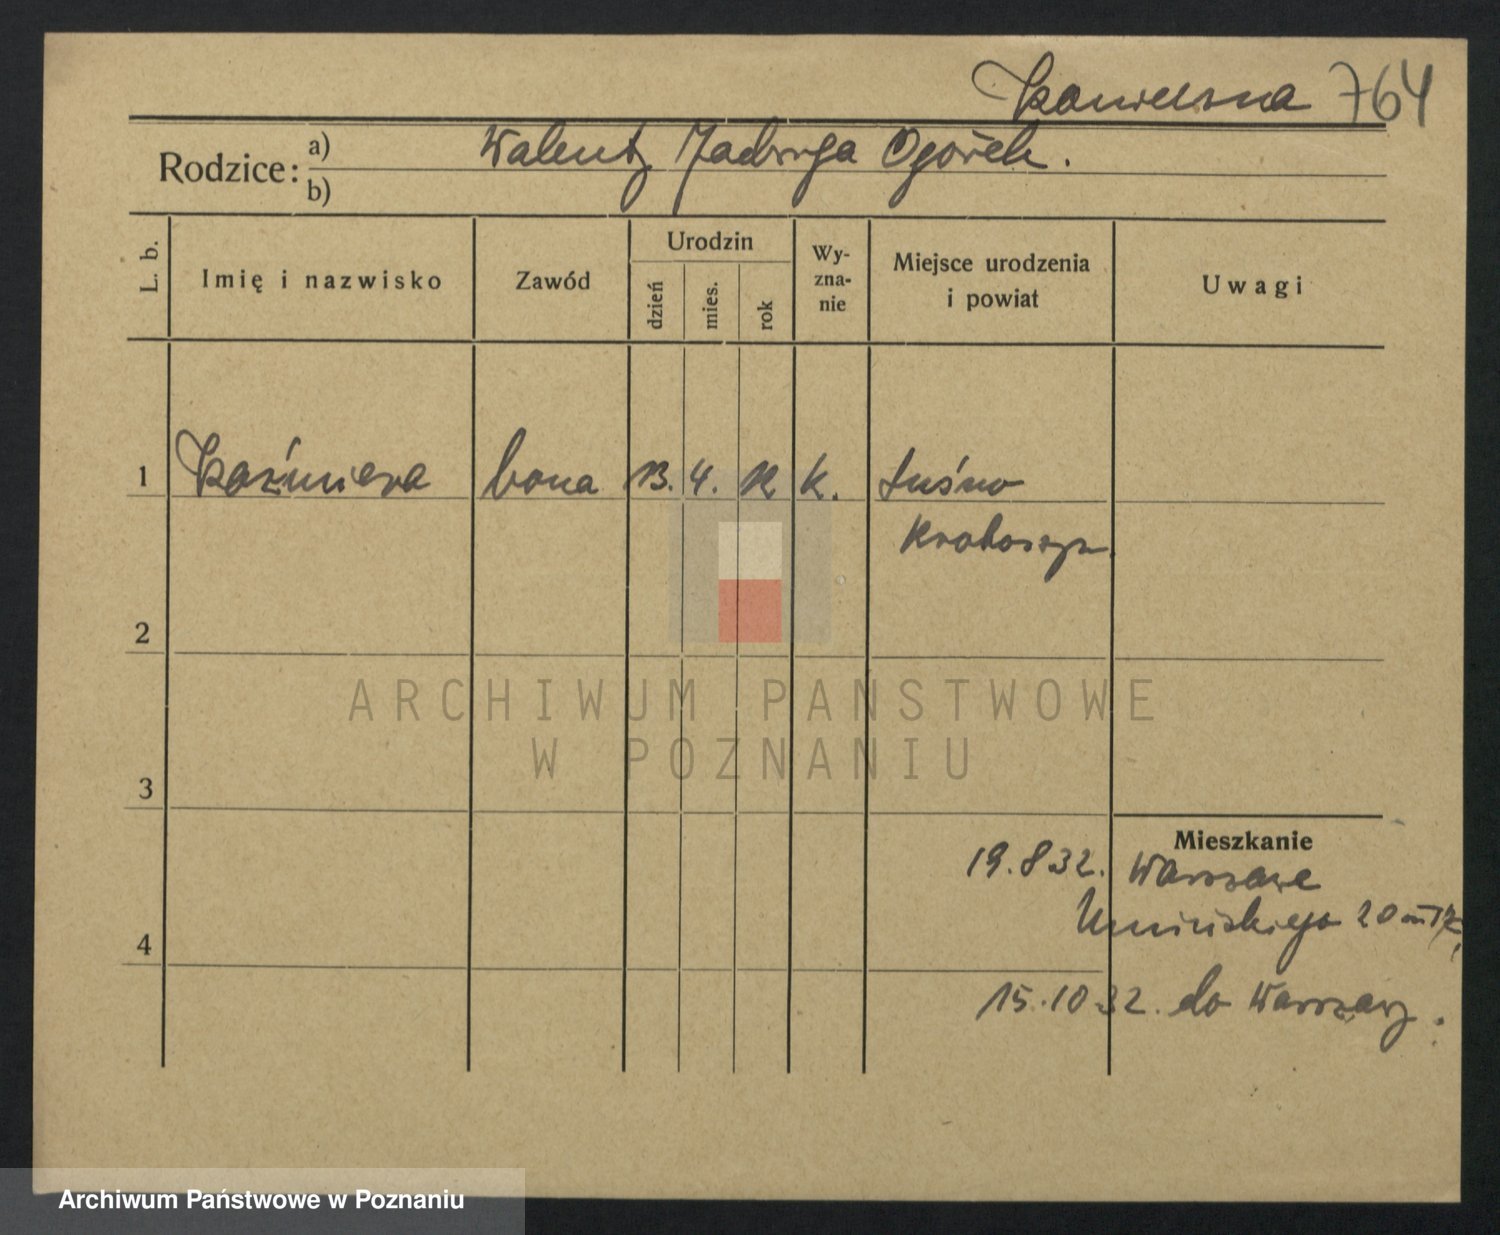 764
Rodzice: a) Walenty Jadwiga Ogórek.
b)
L. b.
Imię i nazwisko
Zawód
Urodzin
dzień
mies.
rok
Wy-
zna-
nie
Miejsce urodzenia
i powiat
Uwagi
1 Kaźmiera bona 13. 4. 12 k.
Krotoszyn
2
ARCHIWUM PAŃSTWOWE
W POZNANIU
3
Mieszkanie
19.8 32. Warszawa
Umińskiego 20
4
15.10 32. do Warszawy.
Archiwum Państwowe w Poznaniu